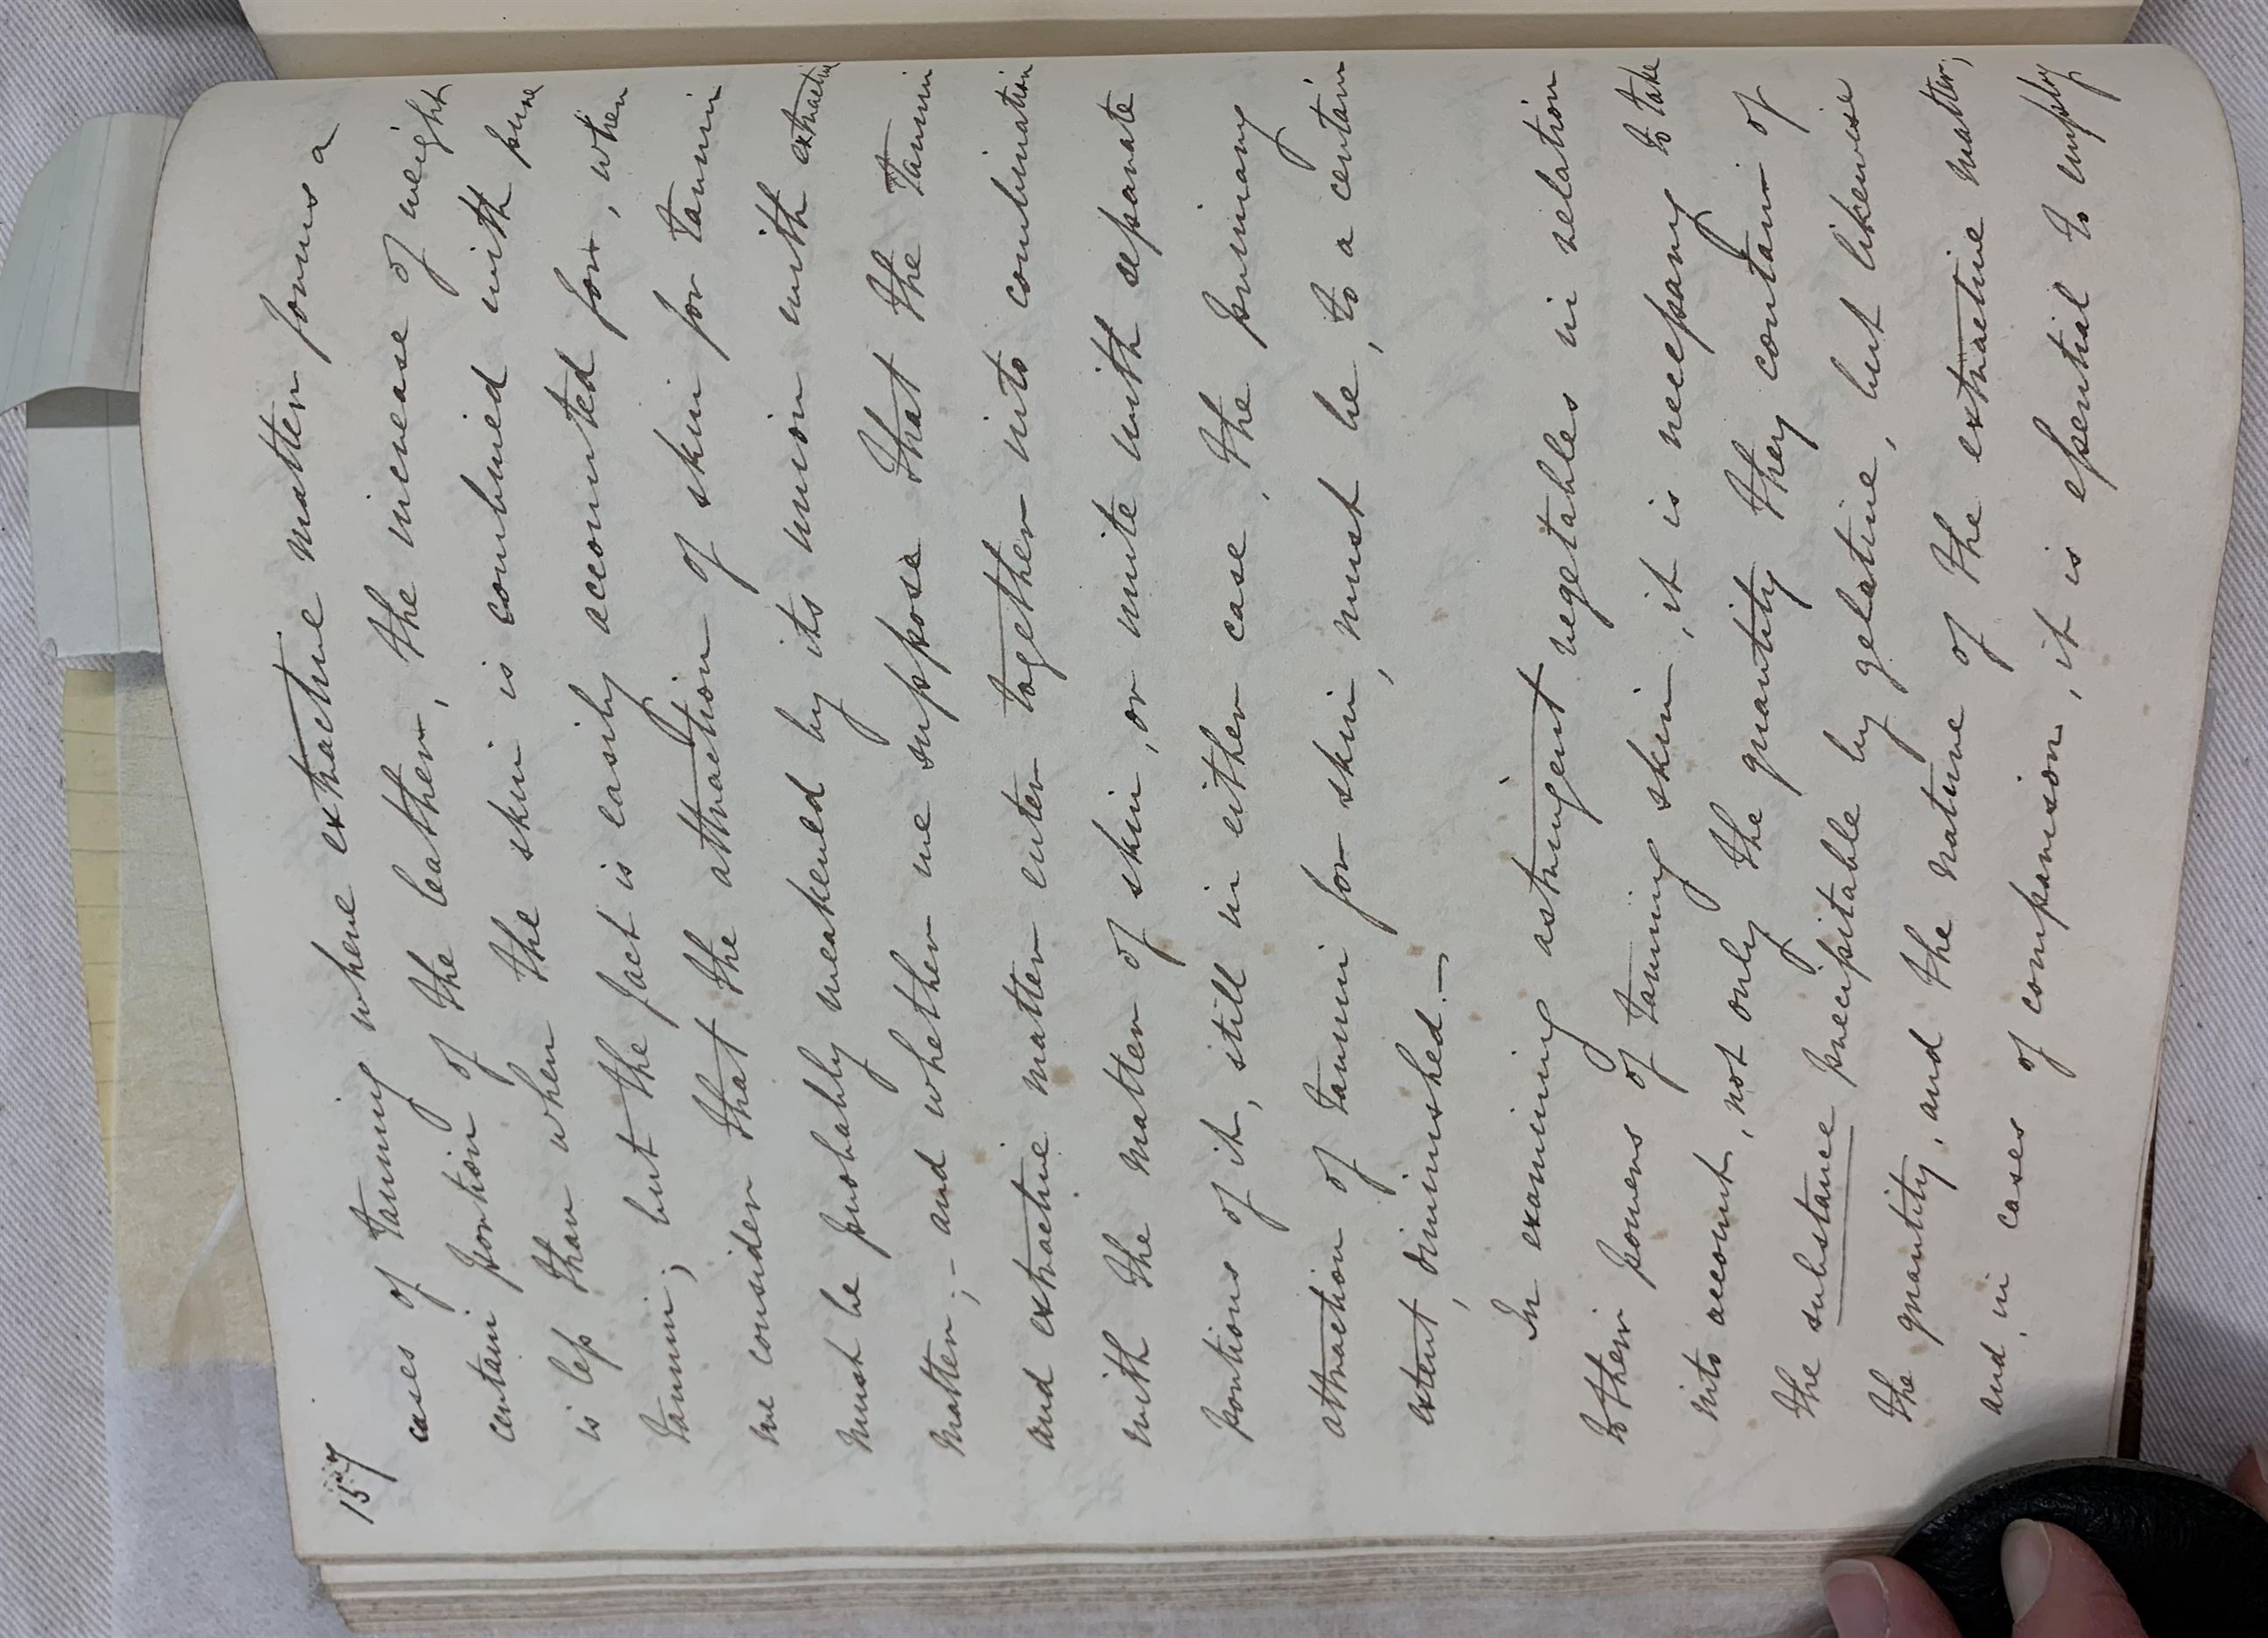 157
cases of tanning where extractive matter forms a
certain portion of the leather, the increase of weight
is less than when the skin is combined with pure
tannin; but the fact is easily accounted for, when
we consider that the attraction of skin for tannin
must be probably weakened by its union with extractive
matter; - and whether we suppose that the tannin
and extractive matter enter together into combination
with the matter of skin, or unite with separate
portions of it, still in either case, the primary
attraction of tannin for skin, must be, to a certain
extent, diminished. -
In examining astringent vegetables in relation
to their powers of tanning skin, it is necessary to take
into account, not only the quantity they contain of
the substance precipitable by gelatine, but likewise
the quantity, and the nature of the extractive matter;
and, in cases of comparison, it is essential to employ